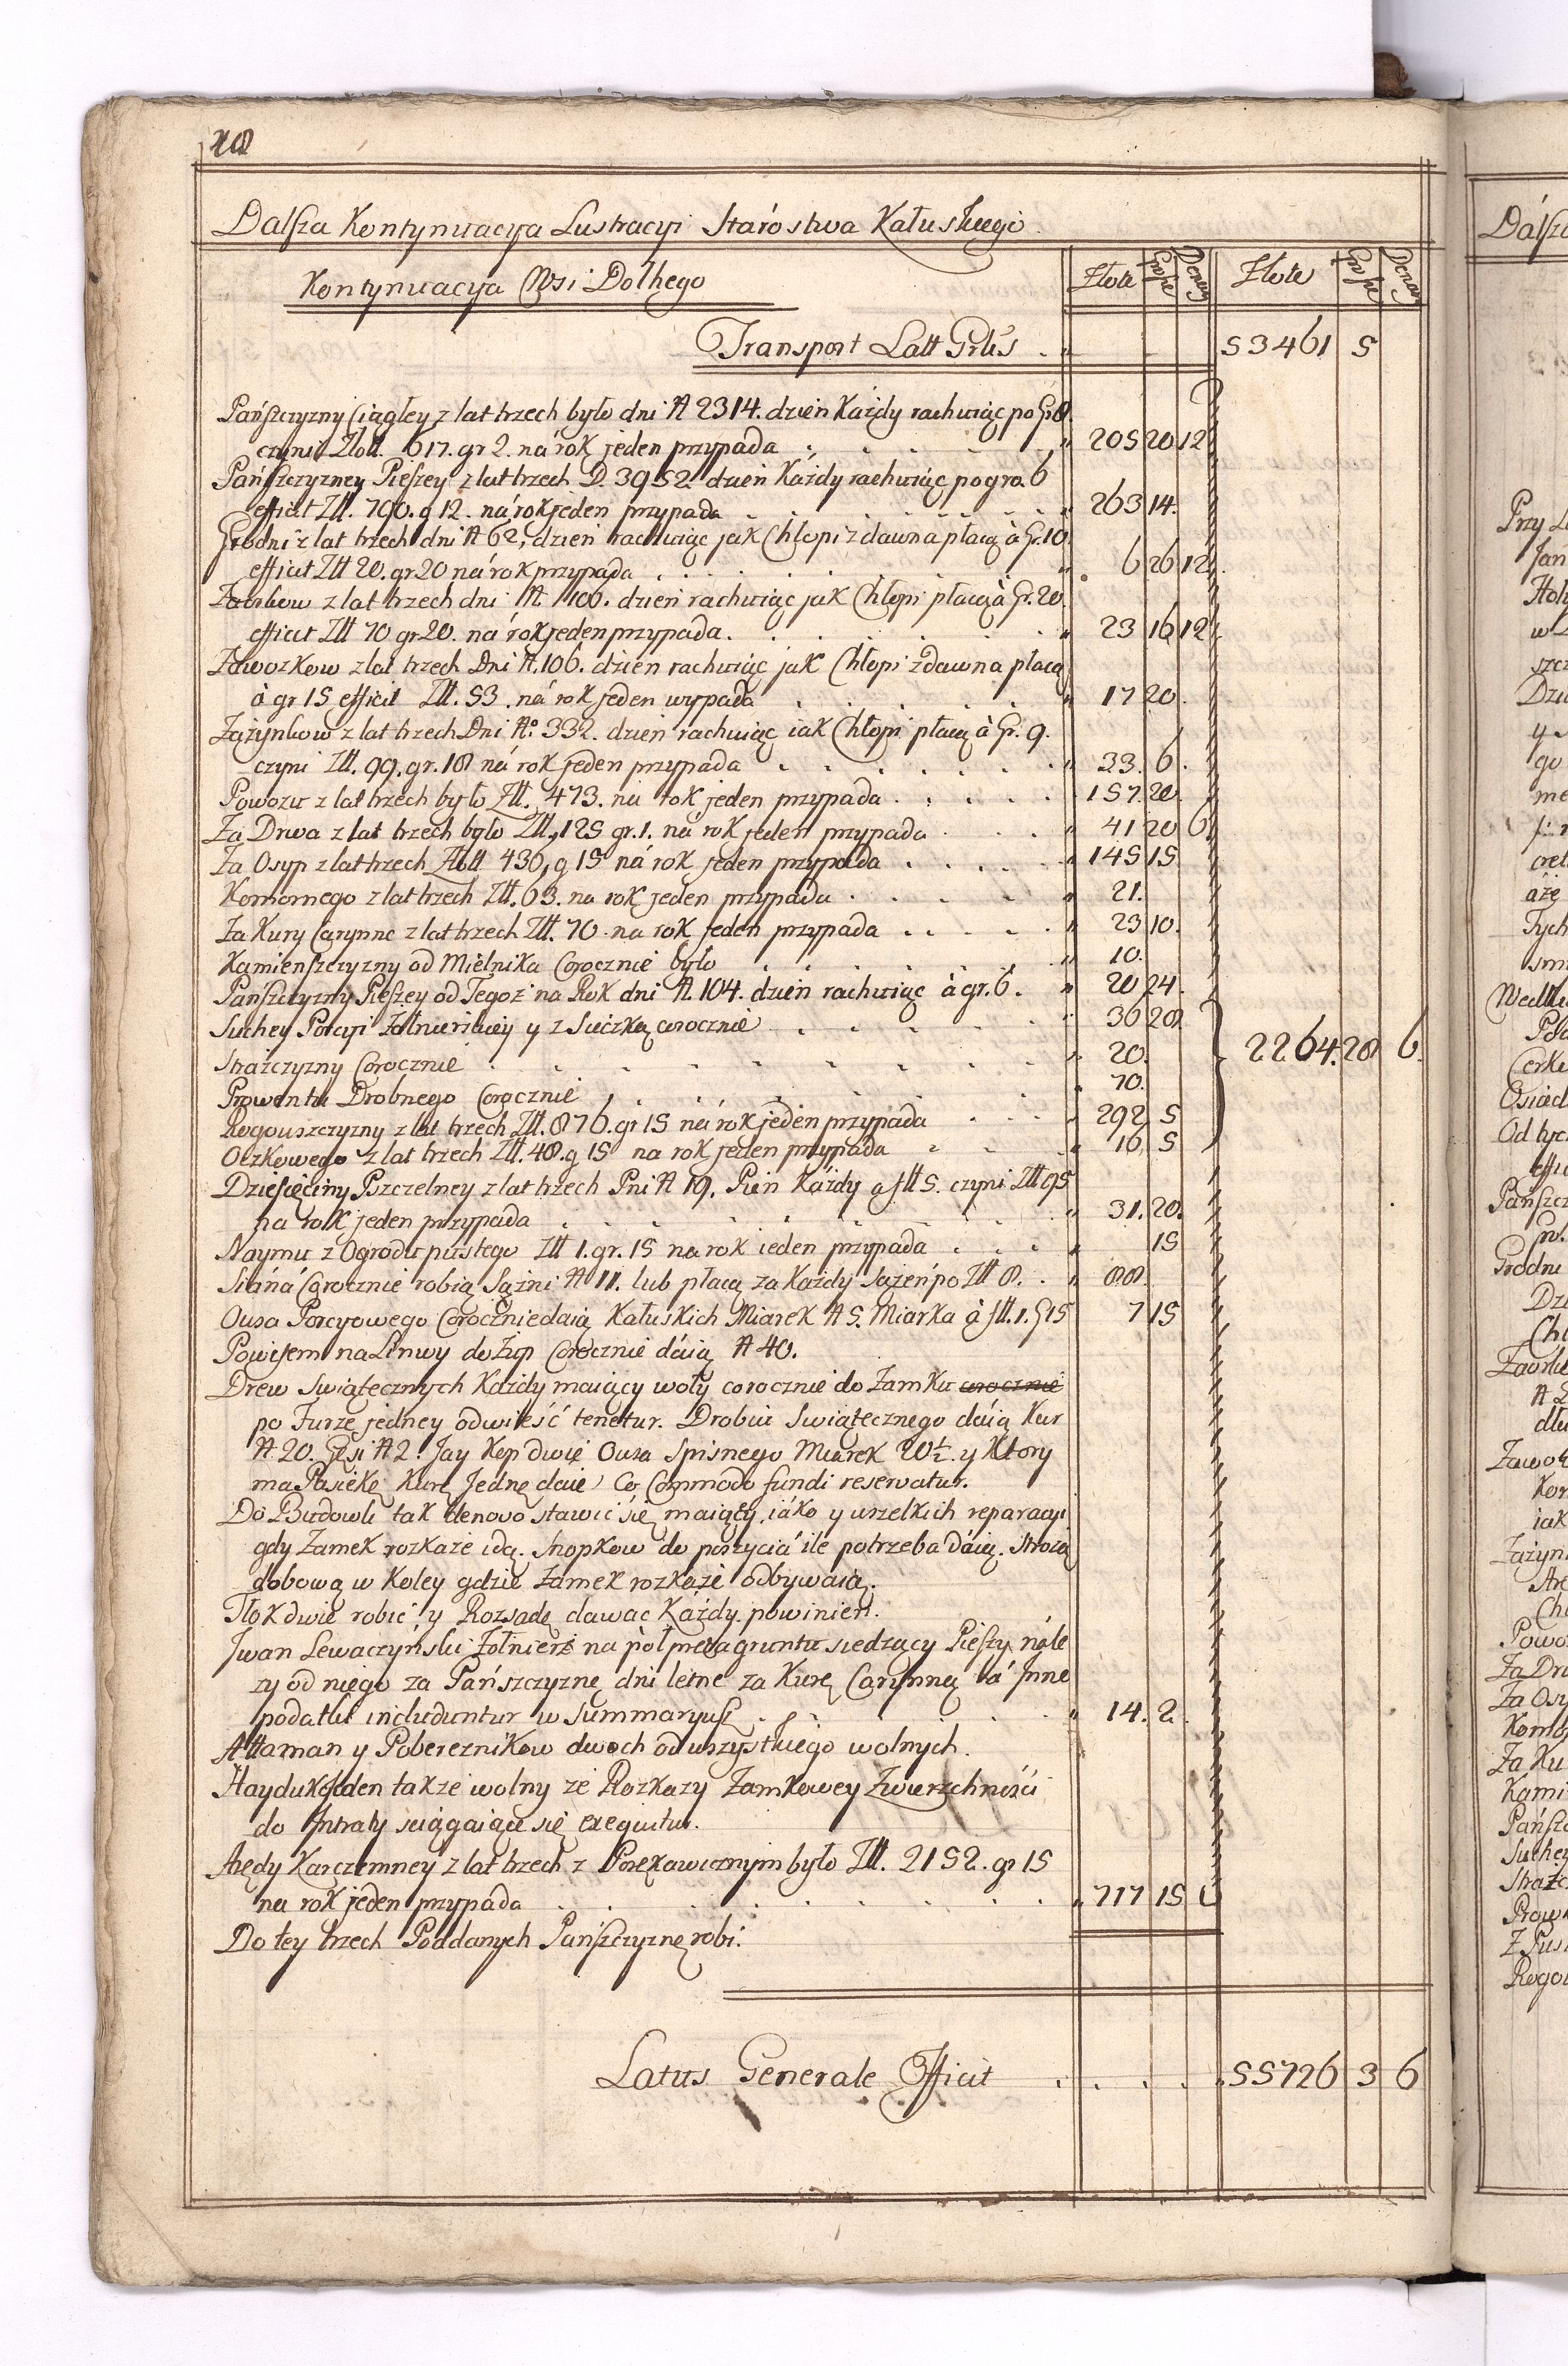 28
Dalsza Kontynuacyja Lustracyi Starostwa Kałuskiego
Kontynuacyja Wsi Dołhego Złote Grosze Denary Złote Grosze Denary
Transport Latt Prtis 53461 5
Pańszczyzny Ciągłey z lat trzech było dni N 2314. dzień Każdy rachuiąc po Gr 8.
czynił Złott. 617. gr 2. na rok jeden przypada 205 20 12
Pańszczyzney Pieszey z lat trzech D. 3952 dzień Każdy rachuiąc po gro. 6
efficit Złł. 790. g 12. na rok jeden przypada 263 14.
Grodni z lat trzech dni N 62, dzień rachuiąc jak Chłopi z dawna płacą à Gr. 10.
efficit Złł 20. gr 20 na rok przypada 6 26 12
Zaorkow z lat trzech dni N. 106. dzień rachuiąc jak Chłopi płacą à Gr. 20
efficit Złł 70 gr 20. na rok jeden przypada. 23 16 12
Zawozkow z lat trzech Dni N. 106. dzień rachuiąc jak Chłopi z dawna płacą
à gr 15 efficit Złł. 53. na rok jeden wypada 17 20.
Zażynkow z lat trzech Dni No: 332. dzień rachuiąc iak Chłopi płacą à Gr. 9.
czyni Złł. 99. gr. 18 na rok jeden przypada 33. 6.
Powozu z lat trzech było Złł. 473. na rok jeden przypada 157. 20.
Za Drwa z lat trzech było Złł. 125 gr. 1. na rok jeden przypada 41 20 6
Za Osyp z lat trzech Złott 436, g 15 na rok jeden przypada 145 15
Komornego z lat trzech Złł. 63. na rok jeden przypada 21.
Za Kury Carynne z lat trzech Złł. 70. na rok jeden przypada 23 10.
Kamienszczyzny od Mielnika Corocznie było 10.
Pańszczyzny Pieszey od Tegoż na Rok dni N. 104. dzień rachuiąc à gr. 6. 20 24.
Suchey Porcyi Zołnierskiey y z Sieczką corocznie 36 28
Strażczyzny Corocznie 20. 2264. 28 6.
Prowentu Drobnego Corocznie 70.
Rogouszczyzny z lat trzech Złł. 876. gr 15 na rok jeden przypada 292 5
Oczkowego z lat trzech Złł. 48. g 15 na rok jeden przypada 16 5
Dziesięciny Pszczelney z lat trzech Pni N 19. Pień Każdy a złł 5. czyni Złł 95
na rok jeden przypada 31. 20.
Naymu z Ogrodu pustego Złł 1. gr. 15 na rok ieden przypada 15
Siana Corocznie robią Sążni N 11. lub płacą za Każdy Sążeń po Złł 8. 88.
Owsa Porcyowego Corocznie daią Kałuskich Miarek N 5. Miarka à złł. 1. g 15 7 15
Powisem na Linwy do Żup Corocznie daią N 40.
Drew Swiątecznych Każdy maiący woły corocznie do Zamku corocznie
po Furze jedney odwieść tenetur. Drobiu Swiątecznego daią Kur
N. 20. Gęsi N 2. Jay Kop dwie Owsa Spisnego Miarek 20½. y Ktory
ma Pasiekę Kurę Jednę daie Co Commodo fundi reservatur.
Do Budowli tak denovo stawić się maiącey, iako y wszelkich reparacyi
gdy Zamek rozkaże idą. Snopkow do poszycia ile potrzeba daią. Strożą
dobową w Koley gdzie Zamek rozkaże odbywaią.
Tłok dwie robić y Rozsadę dawac Każdy powinien.
Jwan Lewaczyński Żołnierz na poł pręta gruntu siedzący Pieszy, nale
zy od niego za Pańszczyznę dni letne za Kurę Carynną Ia Jnne
podatki includuntur w Summaryusz 14. 2.
Attaman y Pobereznikow dwoch od wszystkiego wolnych.
Hayduk Jeden także wolny że Rozkazy Zamkowey Zwierzchności
do Jntraty sciągaiące się exequitur.
Arędy Karczemney z lat trzech z Porękawicznym było Złł. 2152. gr 15
na rok jeden przypada 717 15
Do tey trzech Poddanych Pańszczyznę robi.
Latus Generale Efficit 55726 3 6